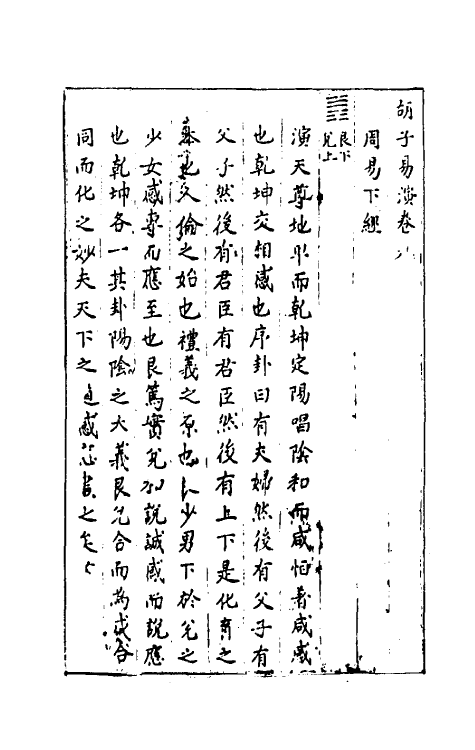 胡子易演卷
周易下經
艮下
兌上
演天尊地卑而乾坤定陽唱陰和而咸恒著咸感
也乾坤交相感也序卦曰有夫婦然後有父子有
父子然後有君臣有君臣然後有上下是化育之
也人倫之始也禮義之原也少男下於兌之
少女感專而應至也艮篤實兌和說誠感而說應
也乾坤各一其卦陽陰之大義艮兌合而為咸合
同而化之妙夫天下之感